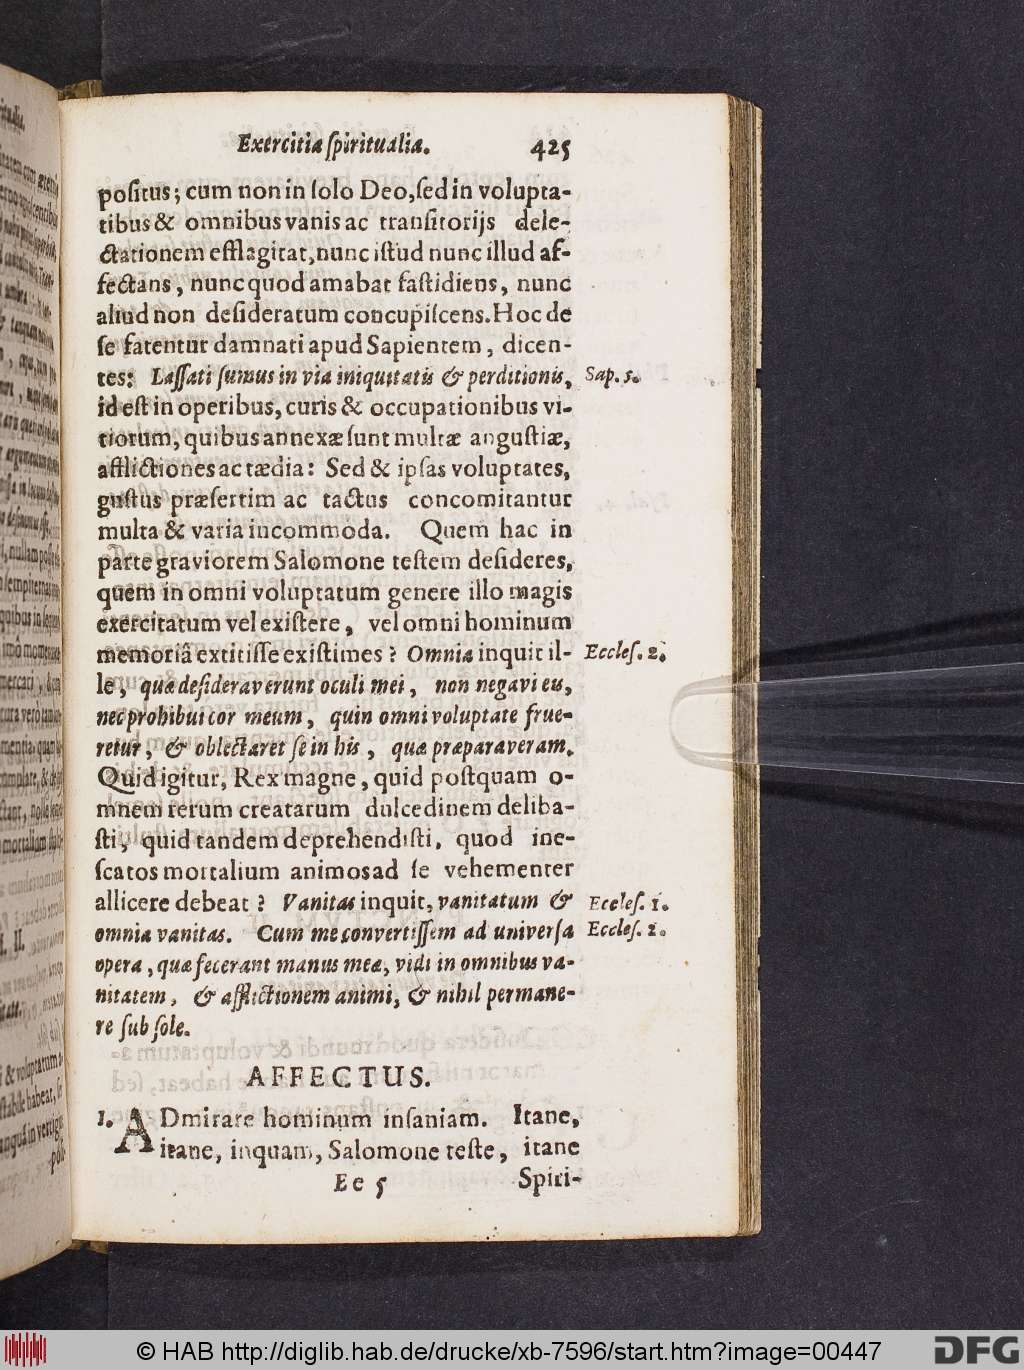 Exercitia ſpiritualia. 425
poſitus; cum non in ſolo Deo, ſed in volupta-
tibus & omnibus vanis ac tranſitorijs dele-
ctationem efflagitat, nunc iſtud nunc illud af-
fectans, nunc quod amabat faſtidiens, nunc
aliud non deſideratum concupiſcens. Hoc de
ſe fatentur damnati apud Sapientem, dicen-
tes: Laſſati ſumus in via iniquitatis & perditionis, Sap. 5.
id eſt in operibus, curis & occupationibus vi-
tiorum, quibus annexæ ſunt multæ anguſtiæ,
afflictiones ac tædia: Sed & ipſas voluptates,
guſtus præſertim ac tactus concomitantur
multa & varia incommoda. Quem hac in
parte graviorem Salomone teſtem deſideres,
quem in omni voluptatum genere illo magis
exercitatum vel exiſtere, vel omni hominum
memoriâ extitiſſe exiſtimes? Omnia inquit il- Eccleſ. 2.
le, quæ deſideraverunt oculi mei, non negavi eis,
nec prohibui cor meum, quin omni voluptate frue-
retur, & oblectaret ſe in his, quæ præparaveram.
Quid igitur, Rex magne, quid poſtquam o-
mnem rerum creatarum dulcedinem deliba-
ſti, quid tandem deprehendiſti, quod ine-
ſcatos mortalium animos ad ſe vehementer
allicere debeat? Vanitas inquit, vanitatum & Eccleſ. 1.
omnia vanitas. Cum me convertiſſem ad univerſa Eccleſ. 2.
opera, quæ fecerant manus meæ, vidi in omnibus va-
nitatem, & afflictionem animi, & nihil permane-
re ſub ſole.
AFFECTUS.
1. ADmirare hominum inſaniam. Itane,
itane, inquam, Salomone teſte, itane
Ee 5 Spiri-
© HAB http://diglib.hab.de/drucke/xb-7596/start.htm?image=00447 DFG